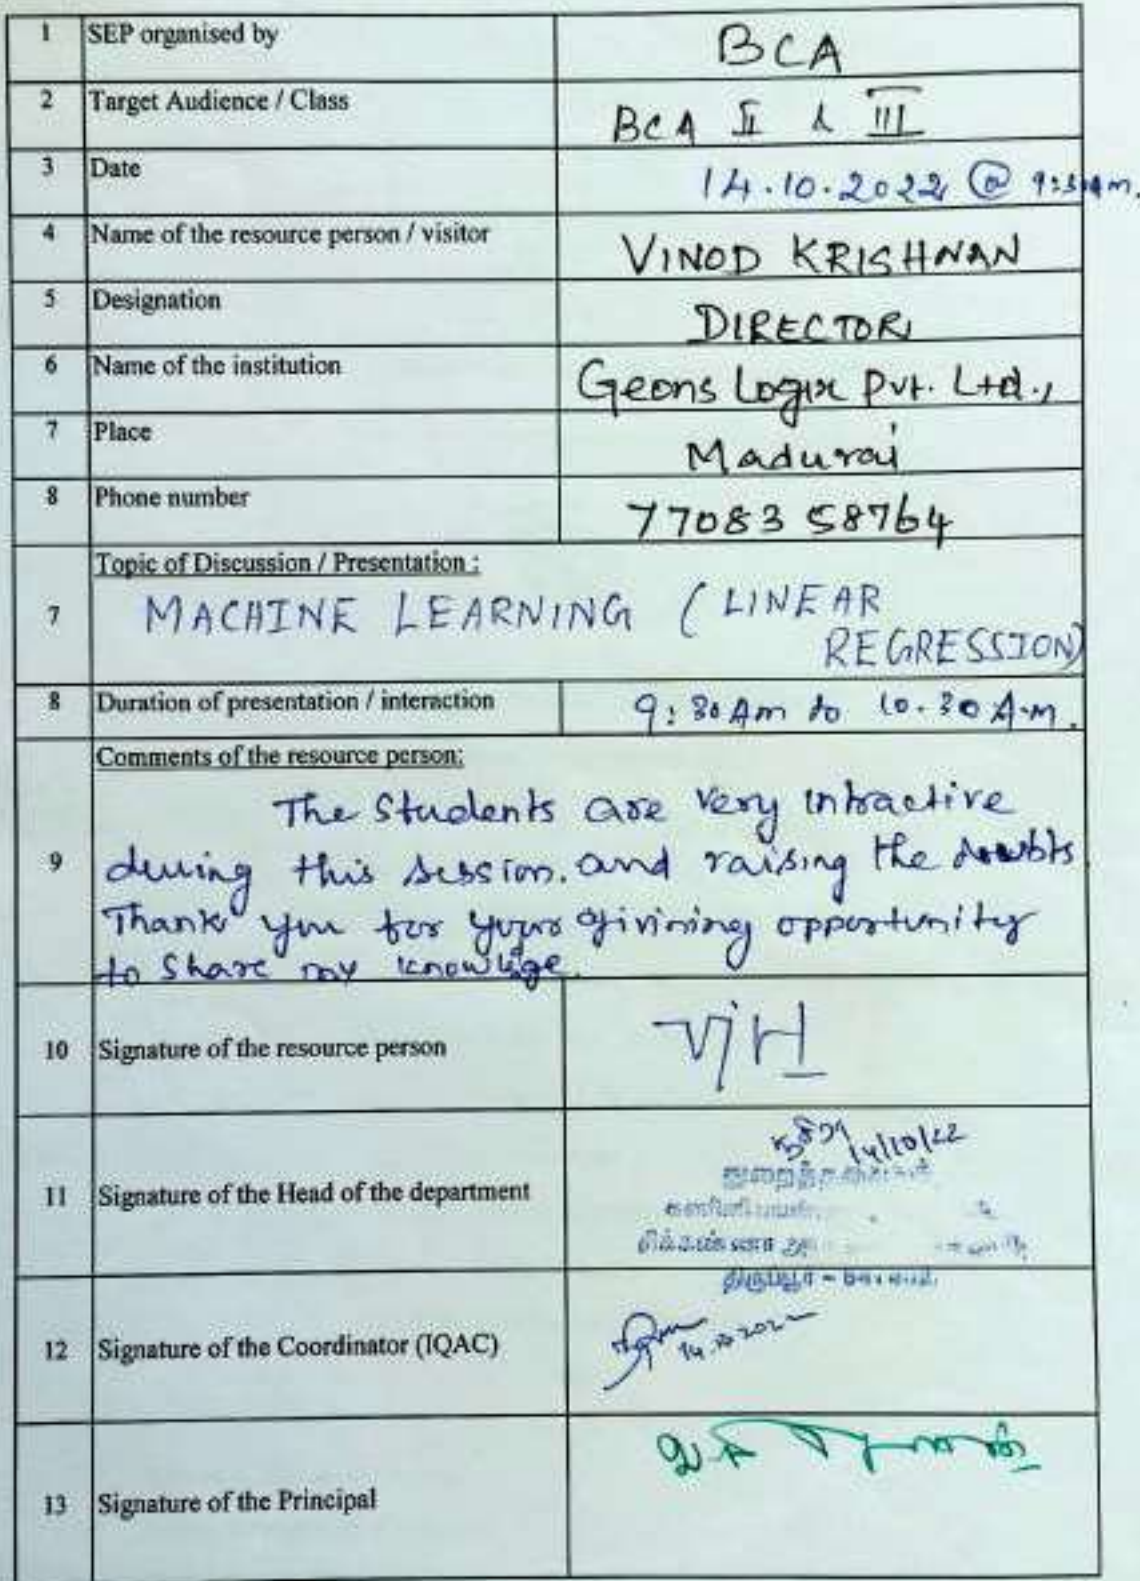 1 SEP organised by BCA
2 Target Audience / Class BCA II & III
3 Date 14.10.2022 @ 9:30Am.
4 Name of the resource person / visitor VINOD KRISHNAN
5 Designation DIRECTOR
6 Name of the institution Geons Logix Pvt. Ltd.,
7 Place Madurai
8 Phone number 77083 58764
Topic of Discussion / Presentation :
7 MACHINE LEARNING ( LINEAR
REGRESSION)
8 Duration of presentation / interaction 9:30 Am to 10.30 A.M.
Comments of the resource person:
The Students are Very intractive
9 during this session. and raising the doubts
Thank you for your givining opportunity
to share my knowlige.
10 Signature of the resource person
14/10/22
11 Signature of the Head of the department
12 Signature of the Coordinator (IQAC) 14.10.2022
13 Signature of the Principal